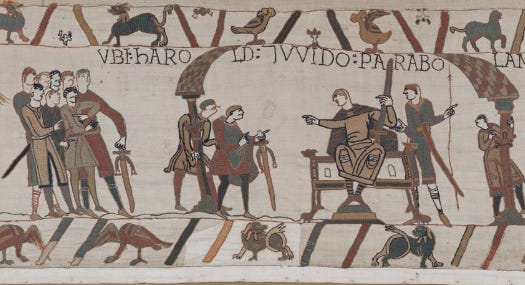 VBI: hARO LD: ⁊VVIDO: PARABO LAN